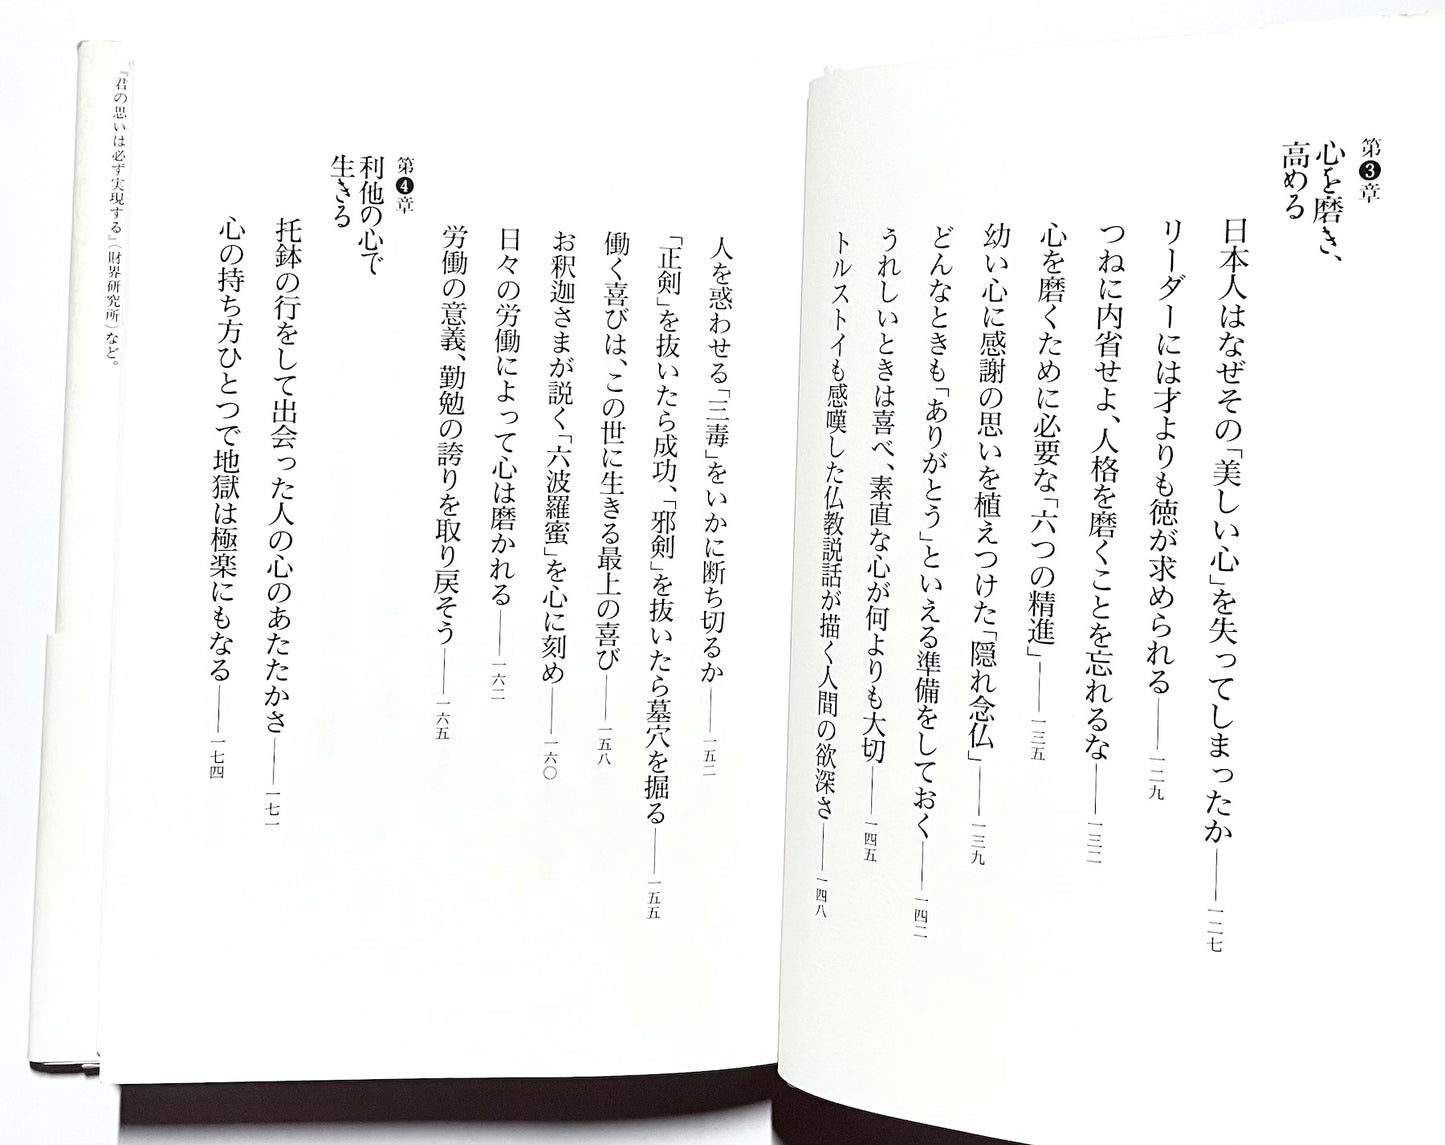 第3章
心を磨き、
高める
日本人はなぜその「美しい心」を失ってしまったか――一二七
リーダーには才よりも徳が求められる――一二九
つねに内省せよ、人格を磨くことを忘れるな――一三二
心を磨くために必要な「六つの精進」――一三五
幼い心に感謝の思いを植えつけた「隠れ念仏」――一三九
どんなときも「ありがとう」といえる準備をしておく――一四二
うれしいときは喜べ、素直な心が何よりも大切――一四五
トルストイも感嘆した仏教説話が描く人間の欲深さ――一四八
人を惑わせる「三毒」をいかに断ち切るか――一五二
「正剣」を抜いたら成功、「邪剣」を抜いたら墓穴を掘る――一五五
働く喜びは、この世に生きる最上の喜び――一五八
お釈迦さまが説く「六波羅蜜」を心に刻め――一六〇
日々の労働によって心は磨かれる――一六二
労働の意義、勤勉の誇りを取り戻そう――一六五
第4章
利他の心で
生きる
托鉢の行をして出会った人の心のあたたかさ――一七一
心の持ち方ひとつで地獄は極楽にもなる――一七四
『君の思いは必ず実現する』（財界研究所）など。